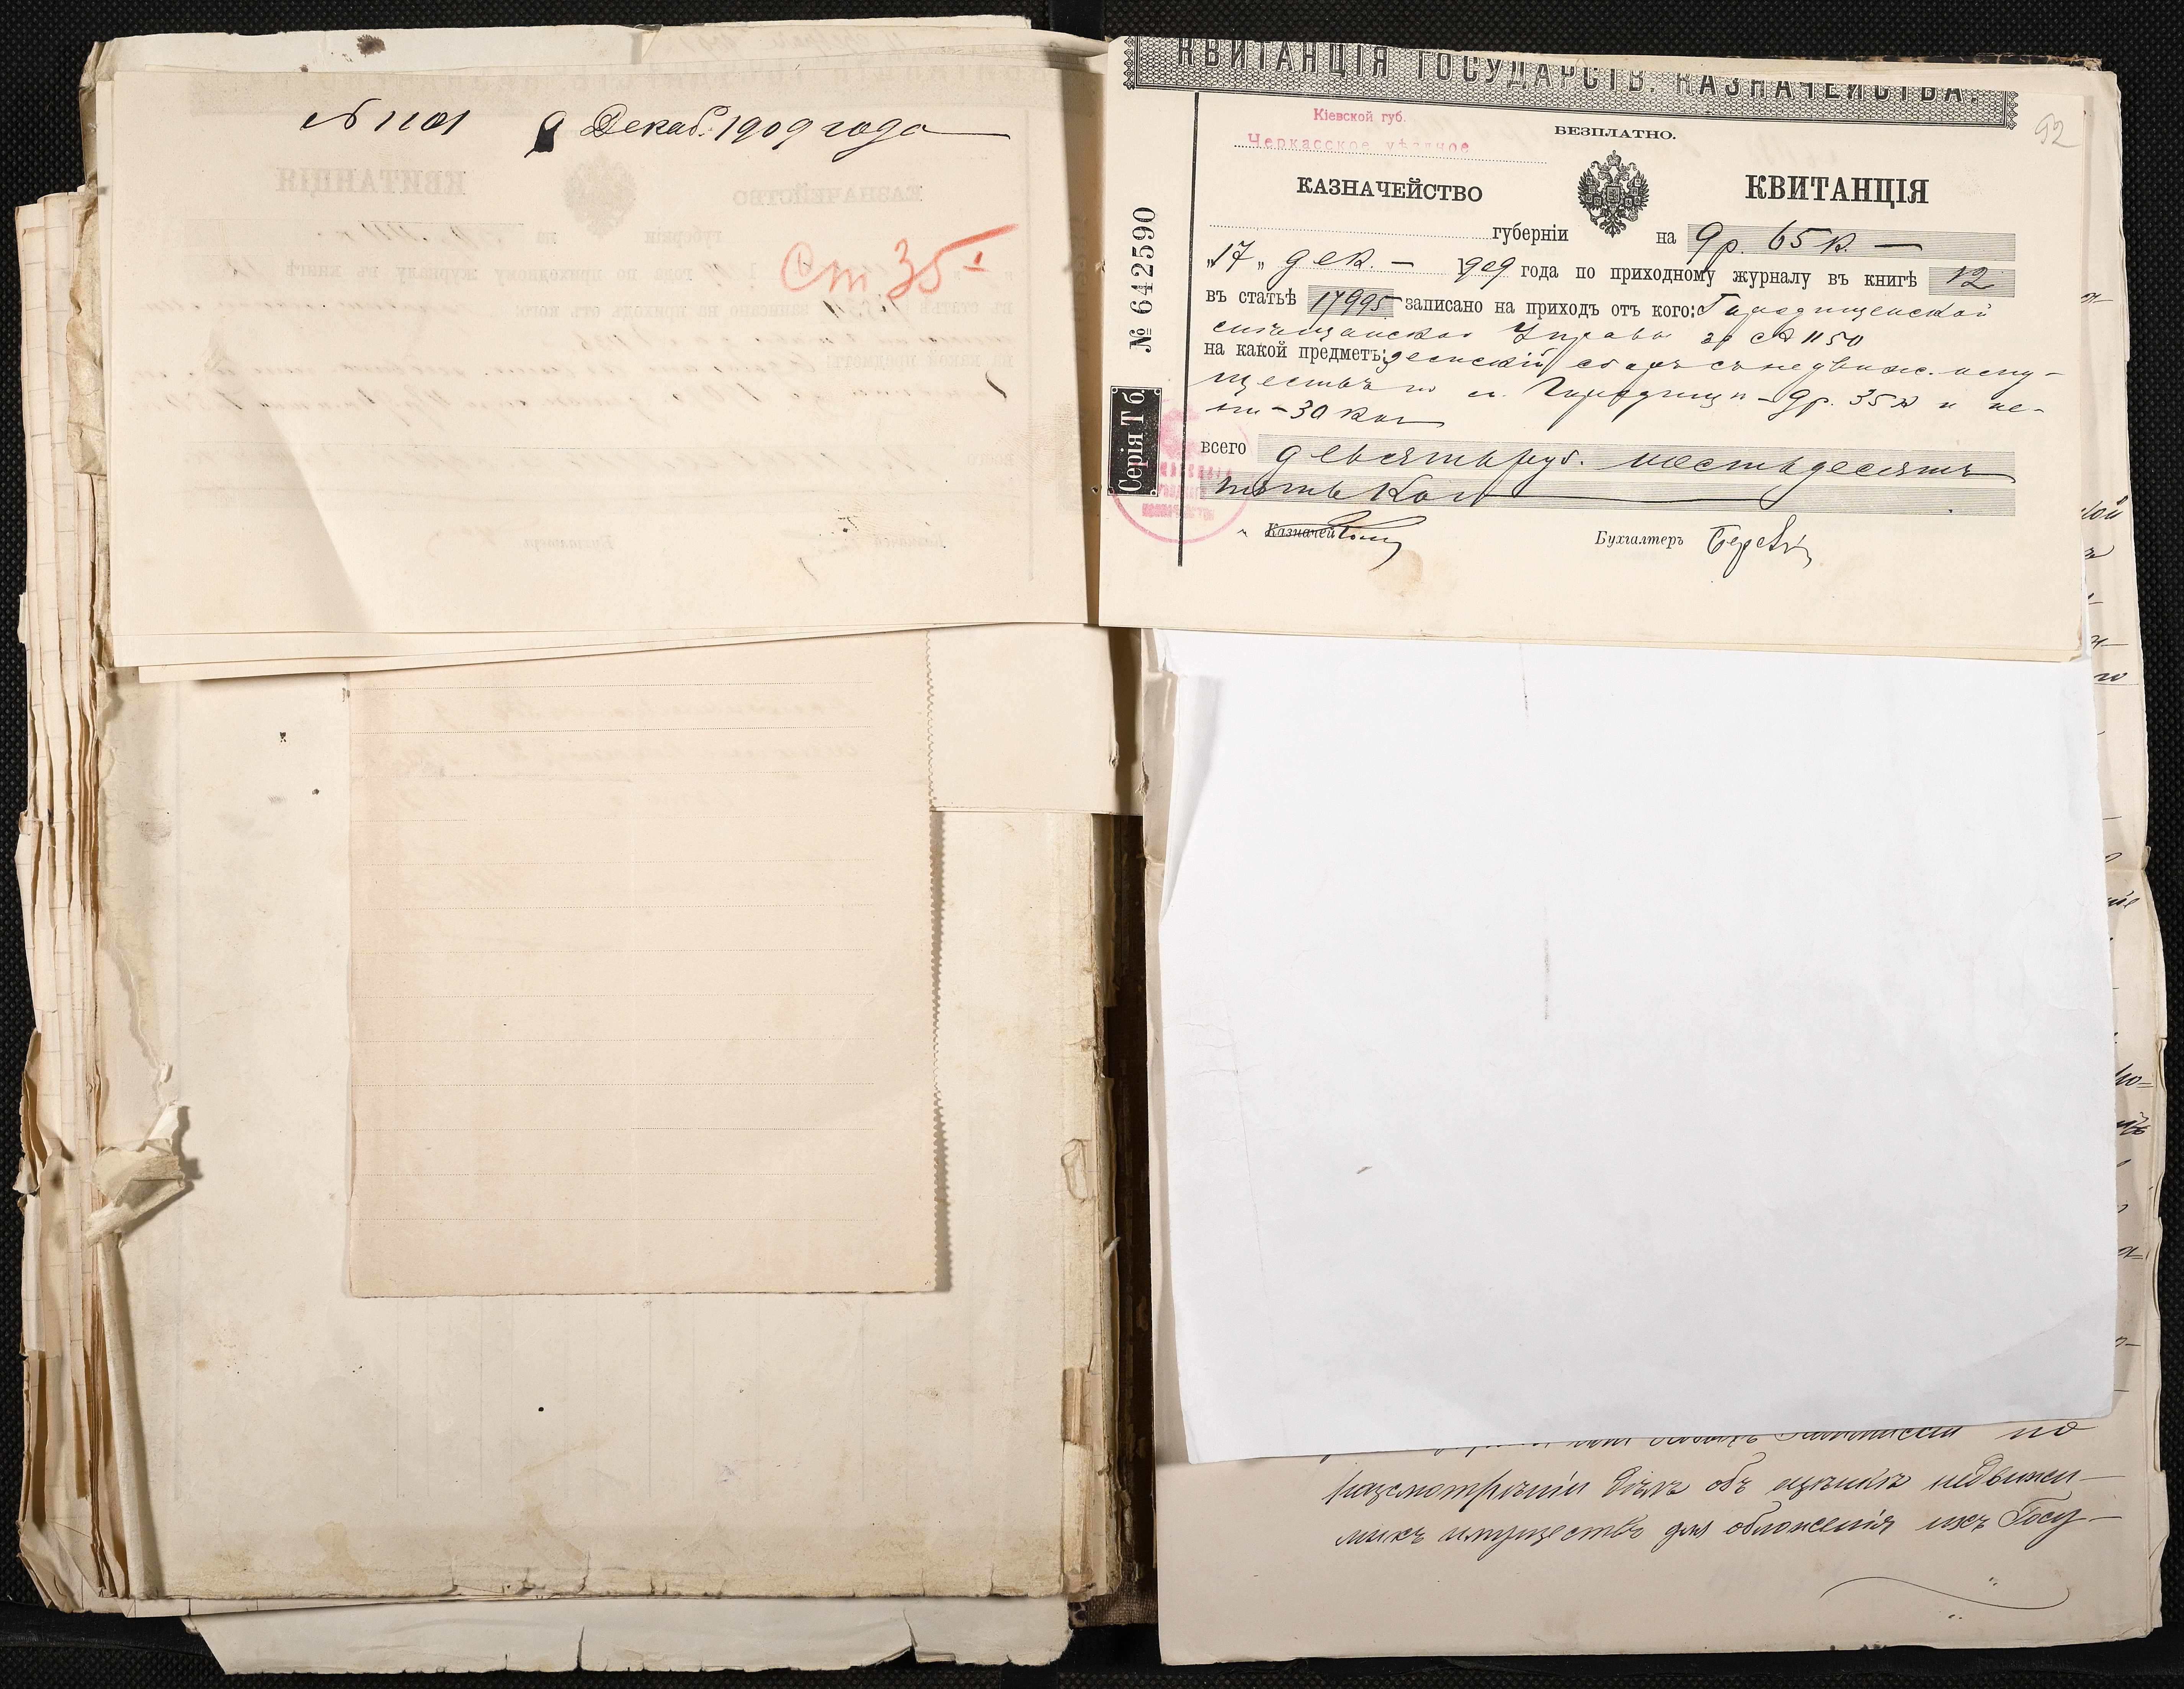 № 1101 9 Декаб. 1909 года
Ст 35
КВИТАНЦІЯ ГОСУДАРСТВ. КАЗНАЧЕЙСТВА.
92
Кіевской губ.
Черкасское уѣздное
БЕЗПЛАТНО.
КАЗНАЧЕЙСТВО
КВИТАНЦІЯ
губерніи на 9 р. 65 к. —
„17„ дек. — 1909 года по приходному журналу въ книгѣ 12
въ статьѣ 17995 записано на приходъ отъ кого: Городищенской
мѣщанской Управы за № 1150
на какой предметъ: земскій сборъ съ недвиж. иму-
ществъ по м. Городищу — 9 р. 35 к и пе-
ни — 30 коп
всего девять руб. шестьдесятъ
пять коп
Казначей
Бухгалтеръ
№ 642590
Серія Т б.
по
разсмотрѣнію дѣлъ объ оцѣнкѣ недвижи-
мыхъ имуществъ для обложенія ихъ Госу-